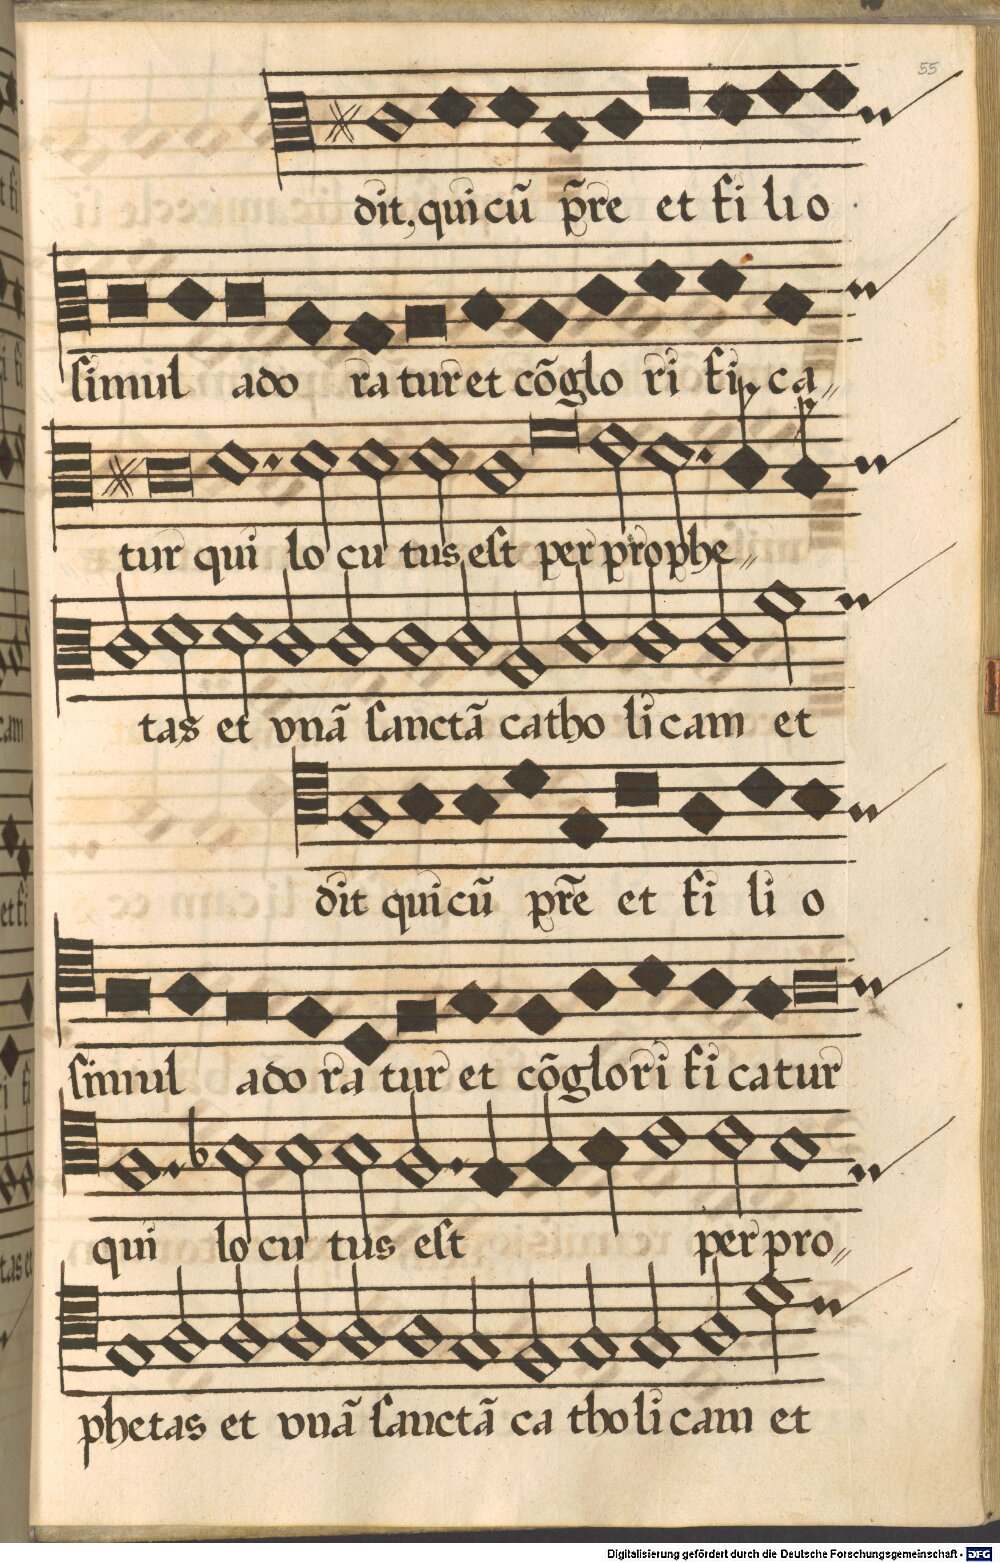 55
dit, qui cū p̄re et fi li o
simul ado ra tur et cōglo ri fi ca〃
tur qui lo cu tus est per prophe〃
tas et vnā sanctā catho licam et
dit qui cū p̄re et fi li o
simul ado ra tur et cōglori fi catur
qui lo cu tus est per pro〃
phetas et vnā sanctā ca tho li cam et
Digitalisierung gefördert durch die Deutsche Forschungsgemeinschaft - DFG